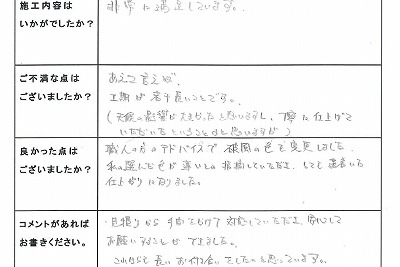 施工内容は
いかがでしたか?
非常に満足しています。
ご不満な点は
ございましたか?
あえて言えば、
工期が若干長いことです。
(天候の影響が大きかったと思いますし、丁寧に仕上げて
いただいたということだと思いますが)
良かった点は
ございましたか?
職人の方のアドバイスで破風の色を変更しました。
私の選んだ色が薄いとの指摘していただき、とても
仕上がりになりました。
コメントがあれば
お書きください。
・見積りから手間をかけて対応していただき、安心して
お願いすることができました。
これからも長いお付き合いをしたいと思っています。